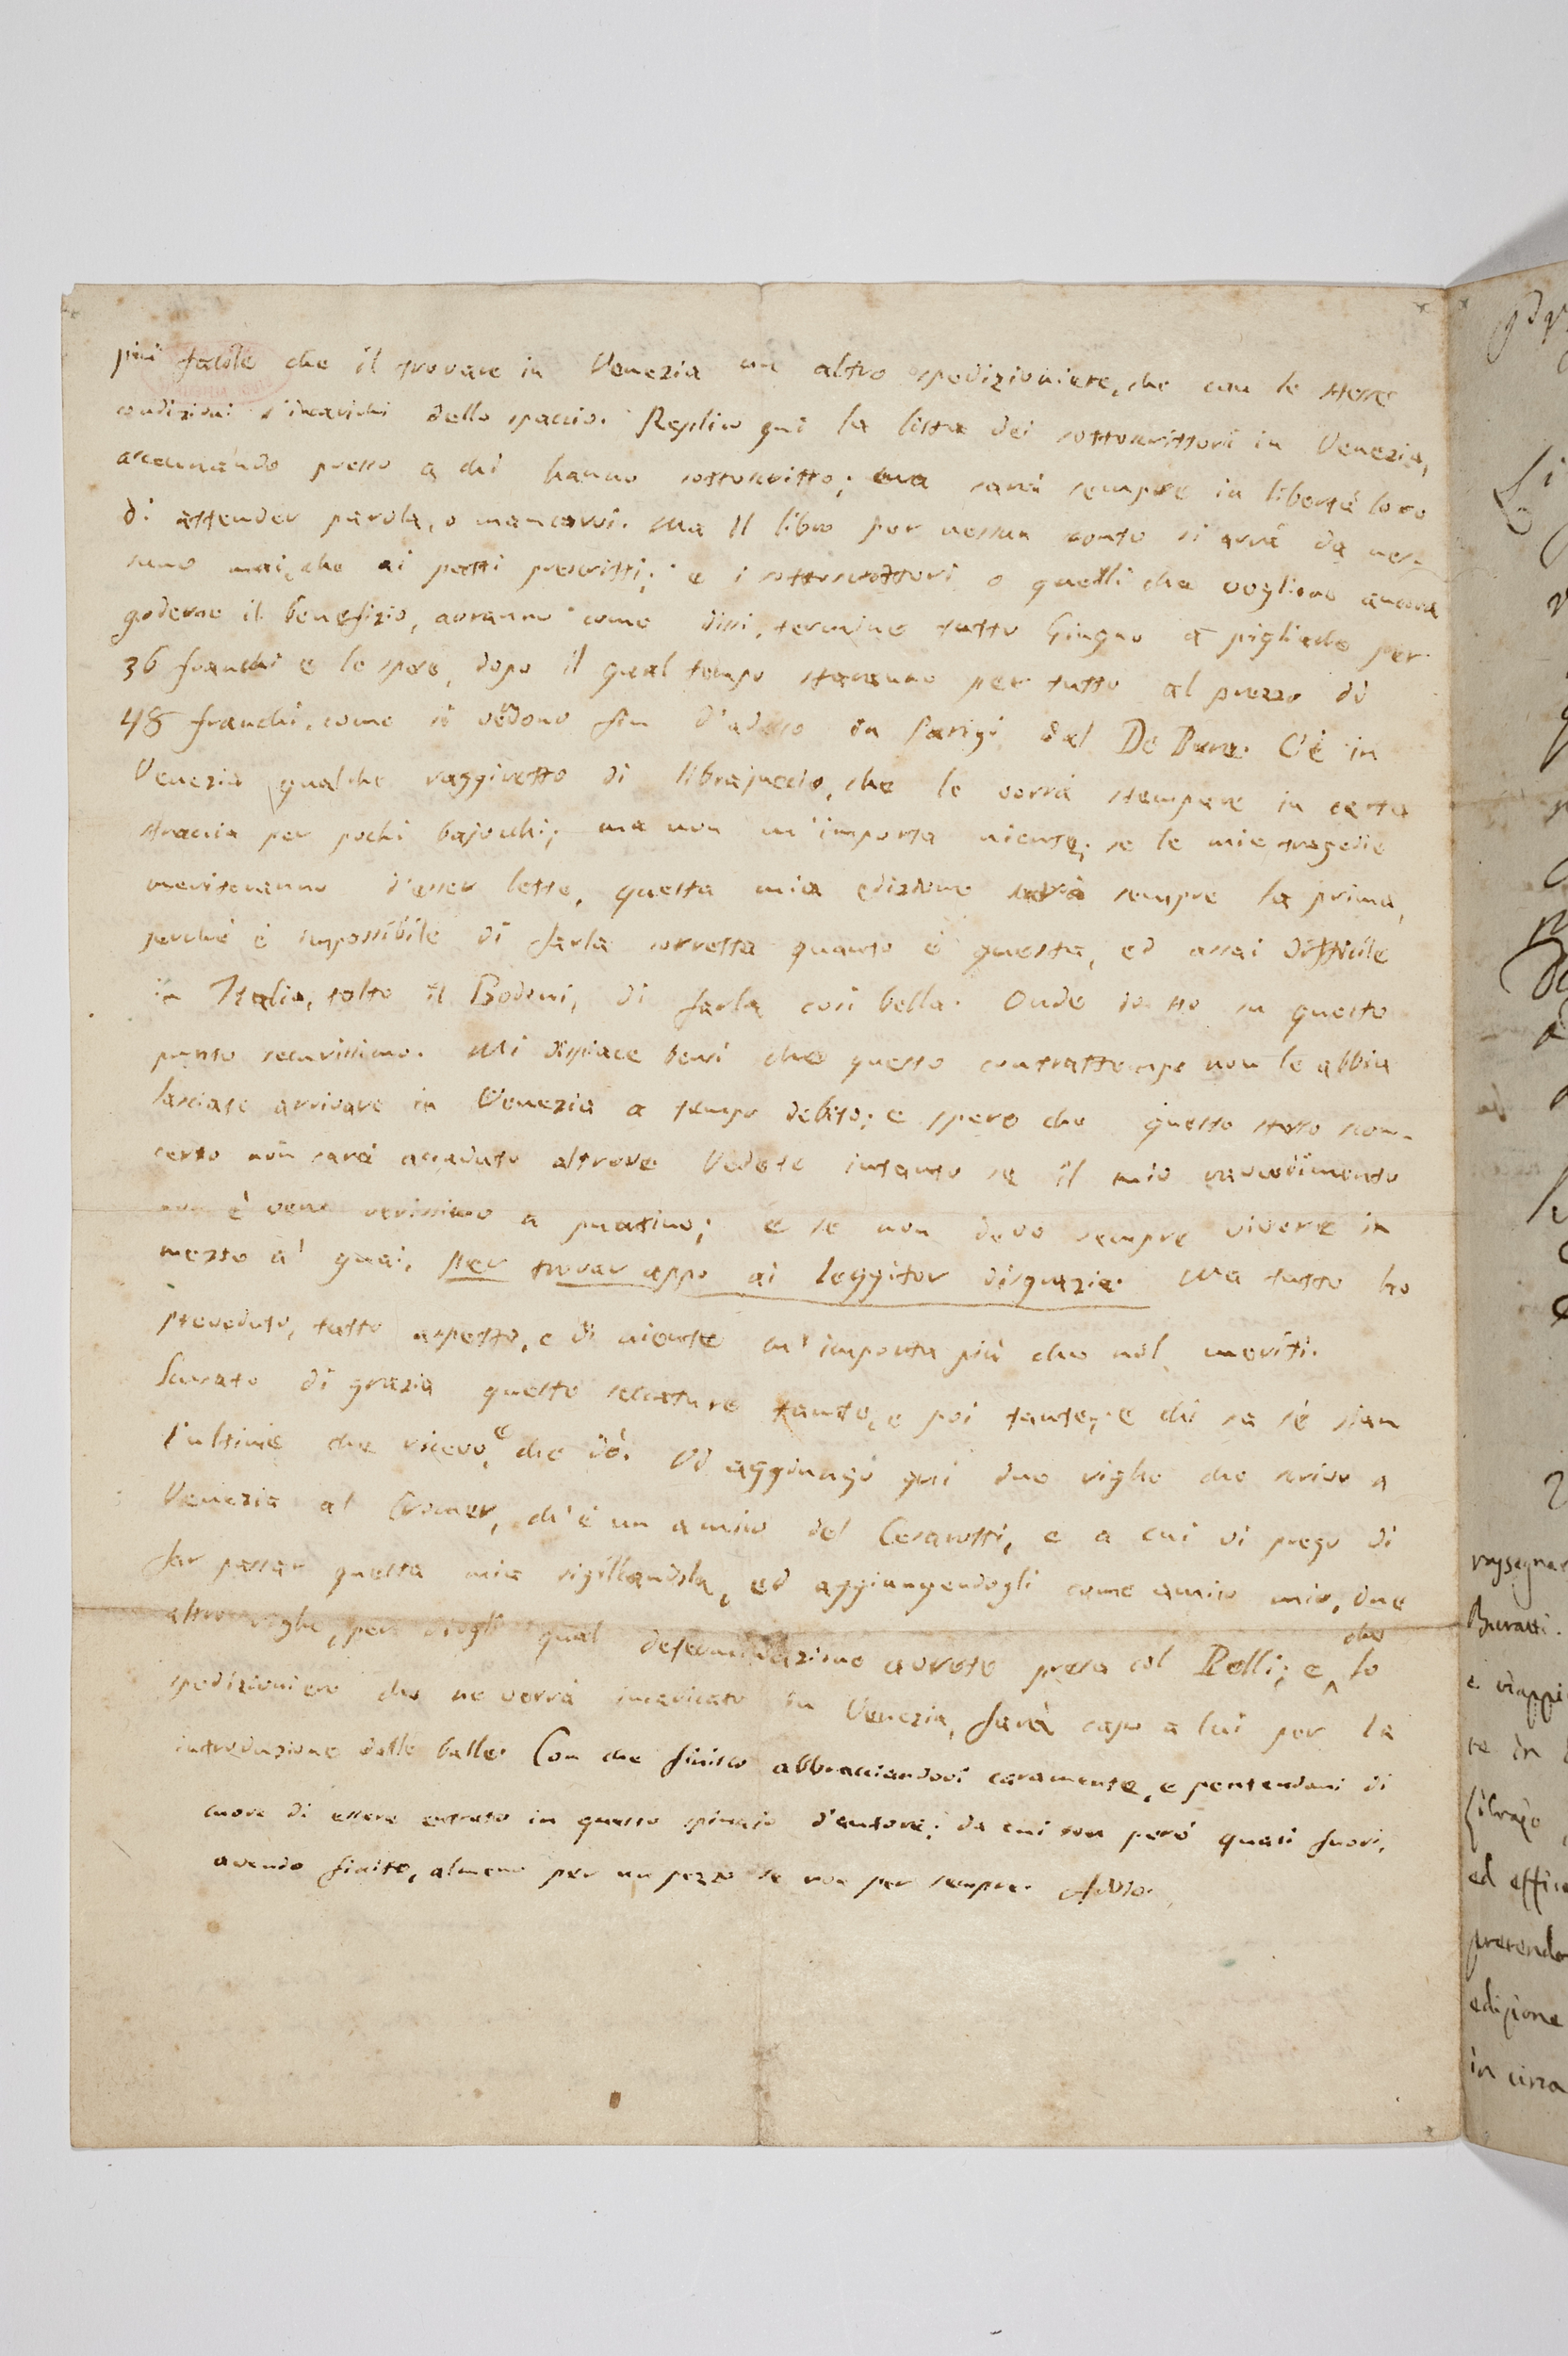 più facile che il trovare in Venezia un altro spedizioniere, che con le stesse
condizioni s'incarichi dello spaccio. Replico qui la lista dei sottoscrittori in Venezia,
accennando presso a chi hanno sottoscritto; ma sarà sempre in libertà loro
di attender parola, o mancarvi. Ma il libro per nessun conto si avrà da nes-
suno mai, che ai patti prescritti; e i sottoscrittori o quelli che vogliono ancora
goderne il benefizio, avranno come dissi, termine tutto Giugno a pigliarlo per
36 franchi e le spese, dopo il qual tempo staranno per tutto al prezzo di
48 franchi, come si vedono fin d'adesso in Parigi dal De Bure. C'è in
Venezia qualche raggiretto di librajuccio, che le vorrà stampare in carta
straccia per pochi bajocchi; ma non m'importa niente; se le mie tragedie
meriteranno d'esser lette, questa mia edizione sarà sempre la prima,
perchè è impossibile di farla corretta quanto è questa, ed assai difficile
in Italia, tolto il Bodoni, di farla così bella. Onde io sto su questo
punto securissimo. Mi dispiace bensì che questo contrattempo non le abbia
lasciate arrivare in Venezia a tempo debito; e spero che questo stesso scon-
certo non sarà accaduto altrove. Vedete intanto se il mio ravvedimento
non è vero verissimo a puntino; e se non devo sempre vivere in
mezzo a' guai, per trovar appo ai leggitor disgrazia. Ma tutto ho
preveduto, tutto aspetto, e di niente m'importa più che nol meriti.
Scusate di grazia queste seccature tante, e poi tante; e chi sa se sian
l'ultime che ricevo, e che dò. Vi aggiungo qui due righe che scrivo a
Venezia al Cromer, ch'è un amico del Cesarotti, e a cui vi prego di
far passar questa mia sigillandola, ed aggiungendogli come amico mio, due
altre righe, per dirgli qual determinazione avrete presa col Rolli; e che lo
spedizioniere che ne verrà incaricato in Venezia, farà capo a lui per la
introduzione delle balle. Con che finisco abbracciandovi caramente, e pentendomi di
cuore di essere entrato in questo spinajo d'autore; da cui son però quasi fuori,
avendo finito, almeno per un pezzo se non per sempre. Addio.
Buratti.
ed effi
pretendo
edizione
in circa